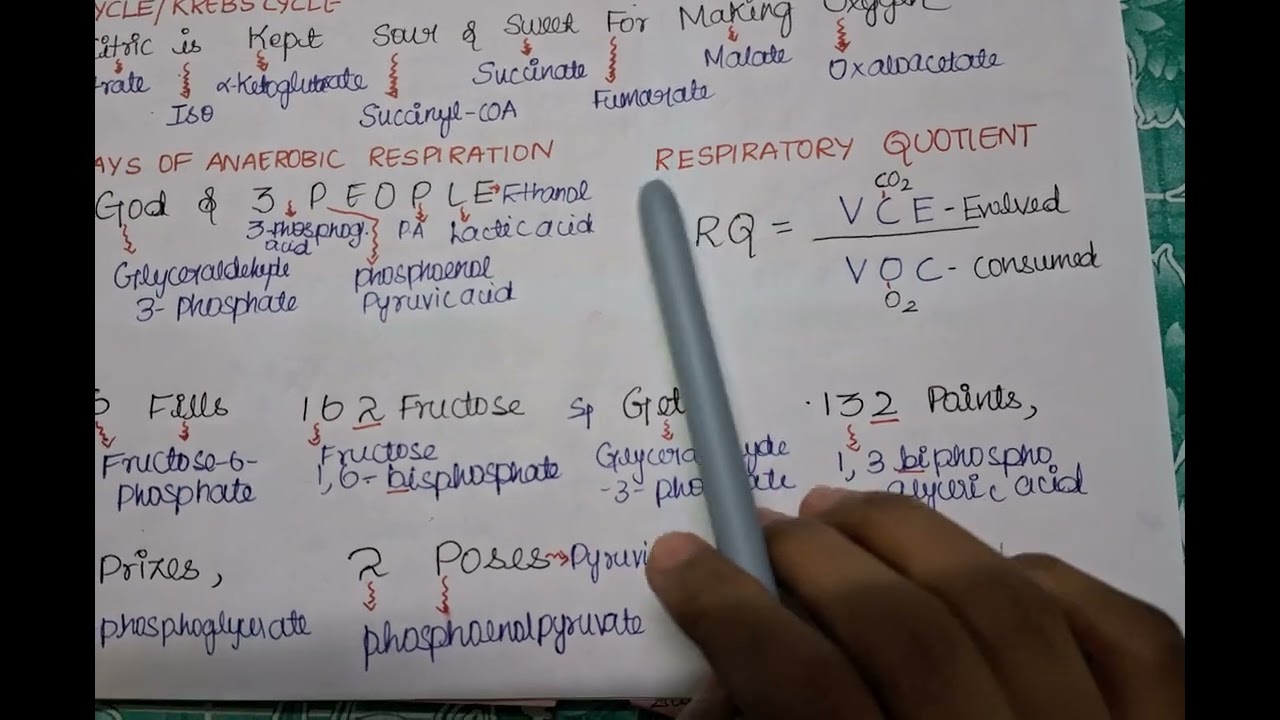 YCLE/KREBS CYCLE
Citric is Kept Sour & Sweet For Making Oxygen
trate Iso α-Ketoglutarate Succinyl-COA Succinate Fumarate Malate Oxaloacetate
AYS OF ANAEROBIC RESPIRATION
God & 3 PEOPLE Ethanol
3-phosphog. acid PA Lactic acid
Glyceraldehyde
3-phosphate
phosphoenol
Pyruvic acid
RESPIRATORY QUOTIENT
CO2
RQ = VCE - Evolved
VOC - Consumed
O2
6 Fills 162 Fructose Sp Got 132 Points,
Fructose-6-
Phosphate
Fructose
1,6-bisphosphate
-3-
1,3 biphospho
glyceric acid
Prizes, 2 Poses Pyruvi
phosphoglycerate phosphoenolpyruvate